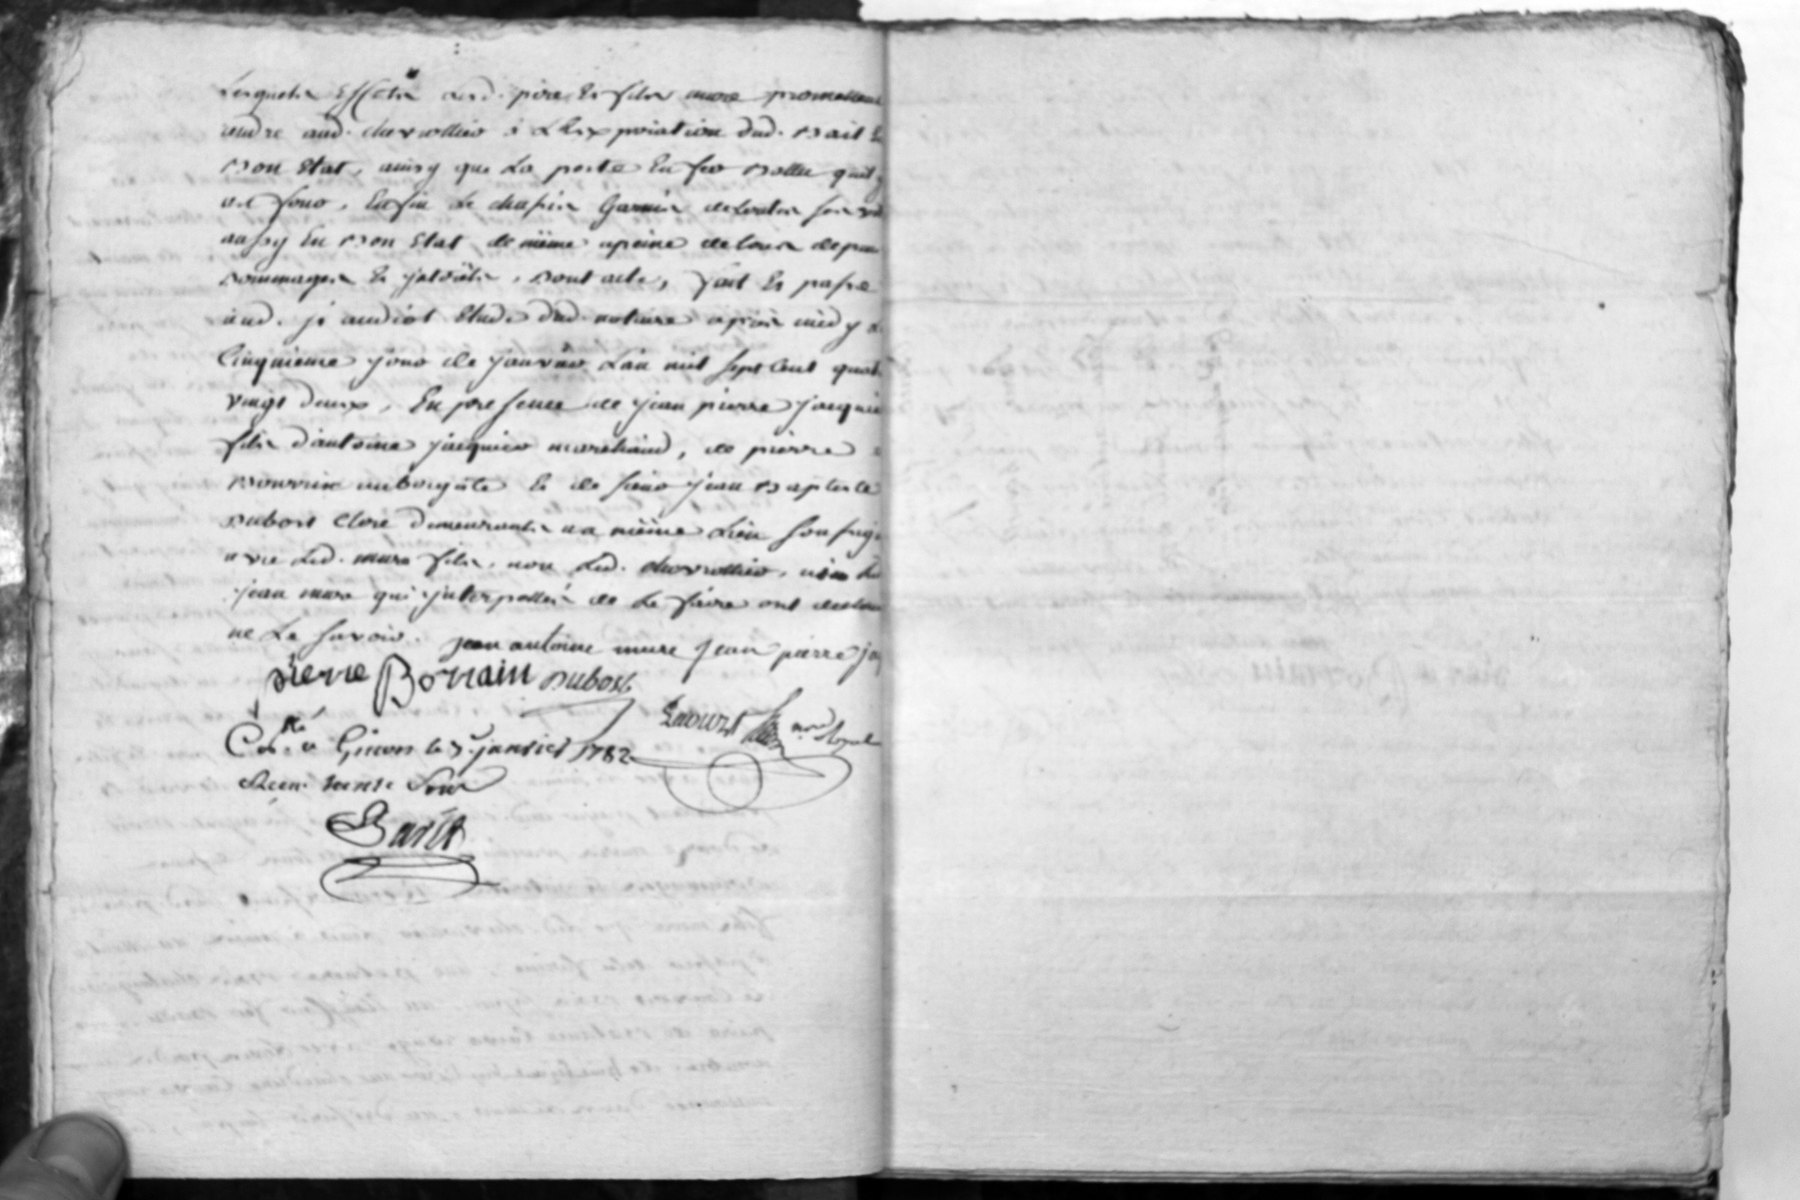 Lesquels Effets Lesd. pere Et fils mure promettent
rendre aud. chevrottier à L'Expiration dud. Bail En
Bon Etat, ainsy que La porte En fer Battu quil y
au four, Enfin Le chesne Garnie de toutes
aussy En Bon Etat de même apeine de tous depens
Dommages Et jnterets, Dont acte, fait Et passé
aud. Etude dud. notaire après midy Le
Cinquieme jour de janvier L'an mil sept Cent quatre
vingt Deux, En presence de jean pierre jacquier
fils d'antoine jacquier marchand, de pierre
Bourrin aubergiste Et de sieur jean Baptiste
Dubost Clerc Demeurants au même Lieu Soussignés
avec Led. mure fils, non Led. chevrottier, n'y Led.
jean mure qui jnterpellés de Le faire ont declaré
ne Le Savoir. jean antoine mure jean pierre jac
pierre Borrain Dubost
nre Royal
Contrôlé à Givors le 5 janvier 1782
Reçu trente Sous